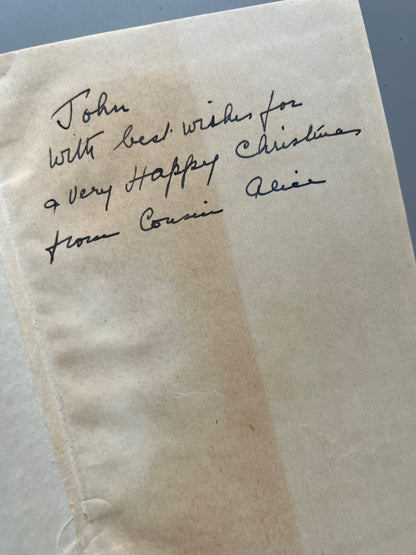 John
With best wishes for
a very Happy Christmas
from Cousin Alice